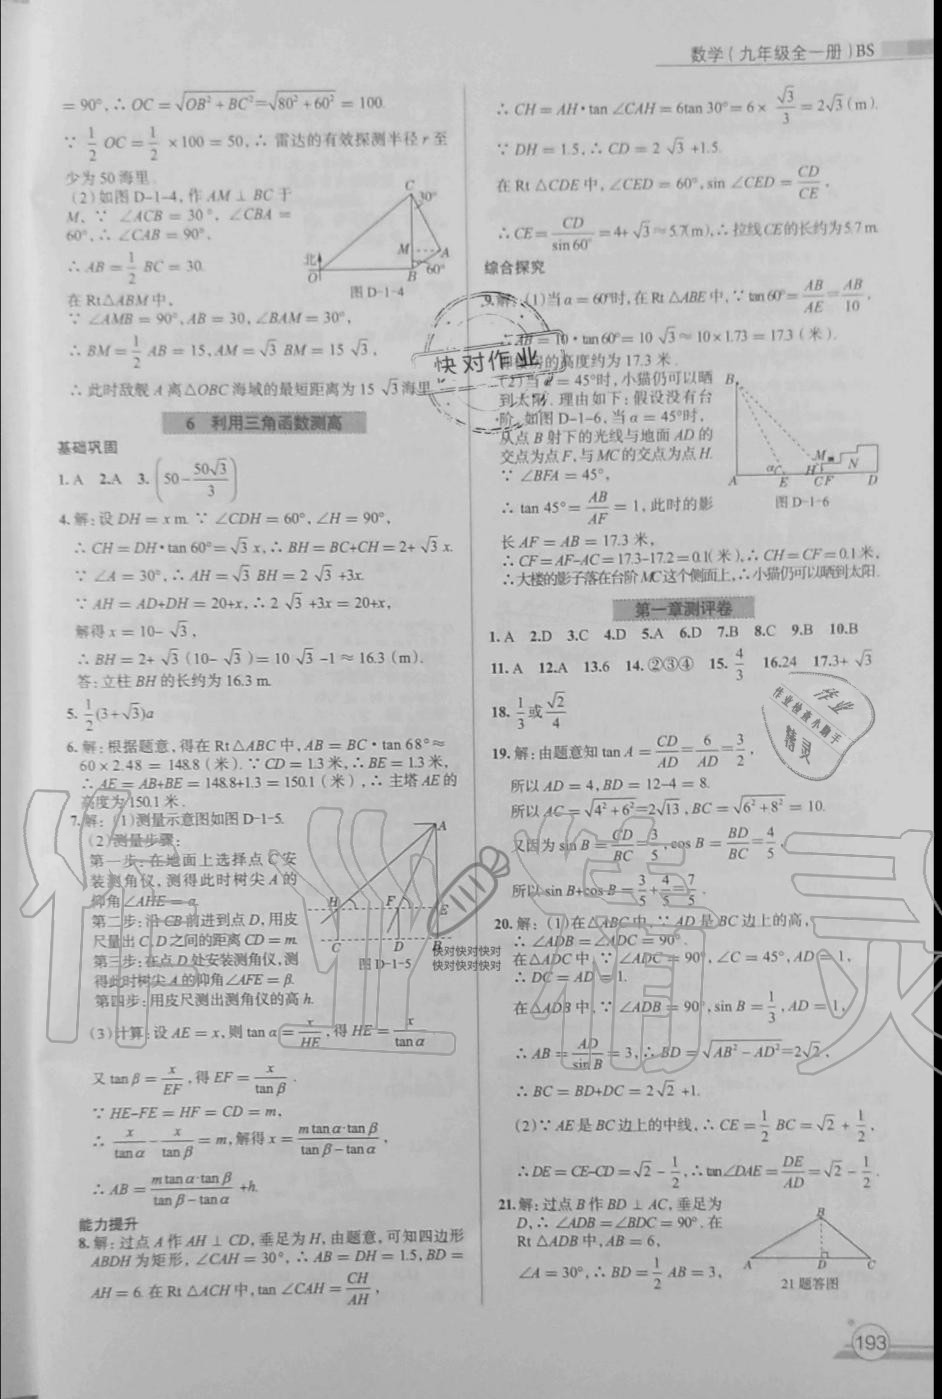 数学(九年级全一册)BS
= 90°,∴ OC = √(OB² + BC²) = √(80² + 60²) = 100.
∵ 1/2 OC = 1/2 × 100 = 50,∴ 雷达的有效探测半径 r 至
少为 50 海里.
(2)如图 D-1-4,作 AM ⊥ BC 于
M, ∵ ∠ACB = 30°, ∠CBA =
60°,∴ ∠CAB = 90°,
∴ AB = 1/2 BC = 30.
在 Rt△ABM 中,
∵ ∠AMB = 90°,AB = 30,∠BAM = 30°,
∴ BM = 1/2 AB = 15,AM = √3 BM = 15 √3,
∴ 此时敌舰 A 离△OBC 海域的最短距离为 15 √3 海里
C
30°
M
A
北
O
B
60°
图 D-1-4
6 利用三角函数测高
基础巩固
1. A 2.A 3. (50 - 50√3/3)
4. 解:设 DH = x m. ∵ ∠CDH = 60°,∠H = 90°,
∴ CH = DH·tan 60°= √3 x,∴ BH = BC+CH = 2+ √3 x.
∵ ∠A = 30°,∴ AH = √3 BH = 2 √3 +3x.
∵ AH = AD+DH = 20+x,∴ 2 √3 +3x = 20+x,
解得 x = 10- √3,
∴ BH = 2+ √3 (10- √3) = 10 √3 -1 ≈ 16.3 (m).
答:立柱 BH 的长约为 16.3 m.
5. 1/2 (3+√3)a
6. 解:根据题意,得在 Rt△ABC 中,AB = BC·tan 68°≈
60 × 2.48 = 148.8 (米). ∵ CD = 1.3 米,∴ BE = 1.3 米,
∴ AE = AB+BE = 148.8+1.3 = 150.1 (米),∴ 主塔 AE 的
高度为 150.1 米.
7. 解:(1)测量示意图如图 D-1-5.
(2)测量步骤:
第一步:在地面上选择点 C 安
装测角仪,测得此时树尖 A 的
仰角∠AHE = α.
第二步:沿 CB 前进到点 D,用皮
尺量出 C,D 之间的距离 CD = m.
第三步:在点 D 处安装测角仪,测
得此时树尖 A 的仰角∠AFE = β.
第四步:用皮尺测出测角仪的高 h.
A
H
F
E
C
D
B
图 D-1-5
(3)计算:设 AE = x,则 tan α = x/HE,得 HE = x/tan α.
又 tan β = x/EF,得 EF = x/tan β.
∵ HE-FE = HF = CD = m,
∴ x/tan α - x/tan β = m,解得 x = m tan α·tan β/(tan β - tan α),
∴ AB = m tan α·tan β/(tan β - tan α) +h.
能力提升
8. 解:过点 A 作 AH ⊥ CD,垂足为 H,由题意,可知四边形
ABDH 为矩形, ∠CAH = 30°,∴ AB = DH = 1.5,BD =
AH = 6. 在 Rt △ACH 中,tan ∠CAH = CH/AH,
∴ CH = AH·tan ∠CAH = 6tan 30°= 6 × √3/3 = 2√3 (m).
∵ DH = 1.5,∴ CD = 2 √3 +1.5.
在 Rt △CDE 中,∠CED = 60°,sin ∠CED = CD/CE,
∴ CE = CD/sin 60° = 4+ √3 ≈ 5.7(m),∴ 拉线 CE 的长约为 5.7 m.
综合探究
9. 解:(1)当 α = 60°时,在 Rt △ABE 中,∵ tan 60°= AB/AE = AB/10,
∴ AB = 10·tan 60°= 10 √3 ≈ 10×1.73 = 17.3 (米).
即楼房的高度约为 17.3 米.
(2)当 α = 45°时,小猫仍可以晒
到太阳. 理由如下:假设没有台
阶,如图 D-1-6,当 α = 45°时,
从点 B 射下的光线与地面 AD 的
交点为点 F,与 MC 的交点为点 H.
∵ ∠BFA = 45°,
∴ tan 45°= AB/AF = 1,此时的影
长 AF = AB = 17.3 米,
∴ CF = AF-AC = 17.3-17.2 = 0.1(米),∴ CH = CF = 0.1 米,
∴ 大楼的影子落在台阶 MC 这个侧面上,∴ 小猫仍可以晒到太阳.
B
M
H
N
α
A
E
C F
D
图 D-1-6
第一章测评卷
1. A 2.D 3.C 4.D 5.A 6.D 7.B 8.C 9.B 10.B
11. A 12.A 13.6 14. ②③④ 15. 4/3 16.24 17.3+ √3
18. 1/3 或 √2/4
19. 解:由题意知 tan A = CD/AD = 6/AD = 3/2,
所以 AD = 4,BD = 12-4 = 8.
所以 AC = √(4² + 6²) = 2√13,BC = √(6² + 8²) = 10.
又因为 sin B = CD/BC = 3/5,cos B = BD/BC = 4/5,
所以 sin B+cos B = 3/5 + 4/5 = 7/5.
20. 解:(1)在△ABC 中,∵ AD 是 BC 边上的高,
∴ ∠ADB = ∠ADC = 90°.
在△ADC 中,∵ ∠ADC = 90°,∠C = 45°,AD = 1,
∴ DC = AD = 1.
在△ADB 中,∵ ∠ADB = 90°,sin B = 1/3,AD = 1,
∴ AB = AD/sin B = 3,∴ BD = √(AB² - AD²) = 2√2,
∴ BC = BD+DC = 2√2 +1.
(2)∵ AE 是 BC 边上的中线,∴ CE = 1/2 BC = √2 + 1/2,
∴ DE = CE-CD = √2 - 1/2,∴ tan∠DAE = DE/AD = √2 - 1/2.
21. 解:过点 B 作 BD ⊥ AC,垂足为
D,∴ ∠ADB = ∠BDC = 90°. 在
Rt △ADB 中,AB = 6,
∠A = 30°,∴ BD = 1/2 AB = 3,
B
A
D
C
21 题答图
193
快对作业
快对快对快对
快对快对快对
作业
作业检查小助手
精灵